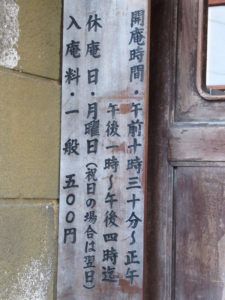 開庵時間・午前十時三十分～正午
午後一時～午後四時迄
休庵日・月曜日(祝日の場合は翌日)
入庵料・一般 五〇〇円